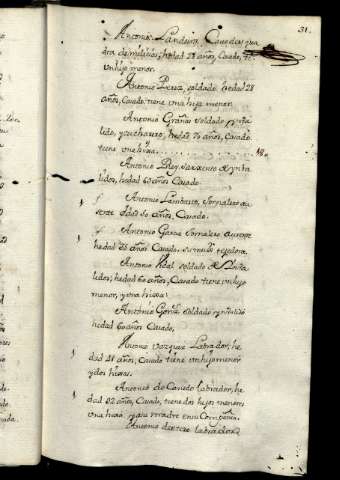 31.
Antonio Landeira, Cavo de esqua
dra de milicias, hedad 28 años, Casado, tiene
un hijo menor.
Antonio Perez, soldado, hedad 28
años, Casado tiene una hija menor.
Antonio Grañas soldado ynva
lido, hedad 70 años, Casado
tiene una hixa.
Antonio Rey, Sarxento de ynba
lidos, hedad 60 años Casado.
Antonio Lambarte, Jornalero au
sente edad 50 años, Casado.
Antonio Garcia Jornalero ausente
hedad 26 años Casado, su texedora.
Antonio Vidal soldado de ynva
lidos, hedad 60 años, Casado tiene un hijo
menor, y una hixa.
Antonio Gonz. soldado ynvalido
hedad 60 años Casado,
Antonio Vazquez Labrador, he
dad 48 años, Casado tiene un hijo menor
y dos hixas.
Antonio do Canedo labrador, he
dad 82 años, Casado, tiene dos hijos menores
una hixa, y a su madre en su Compañia.
Antonio labrador